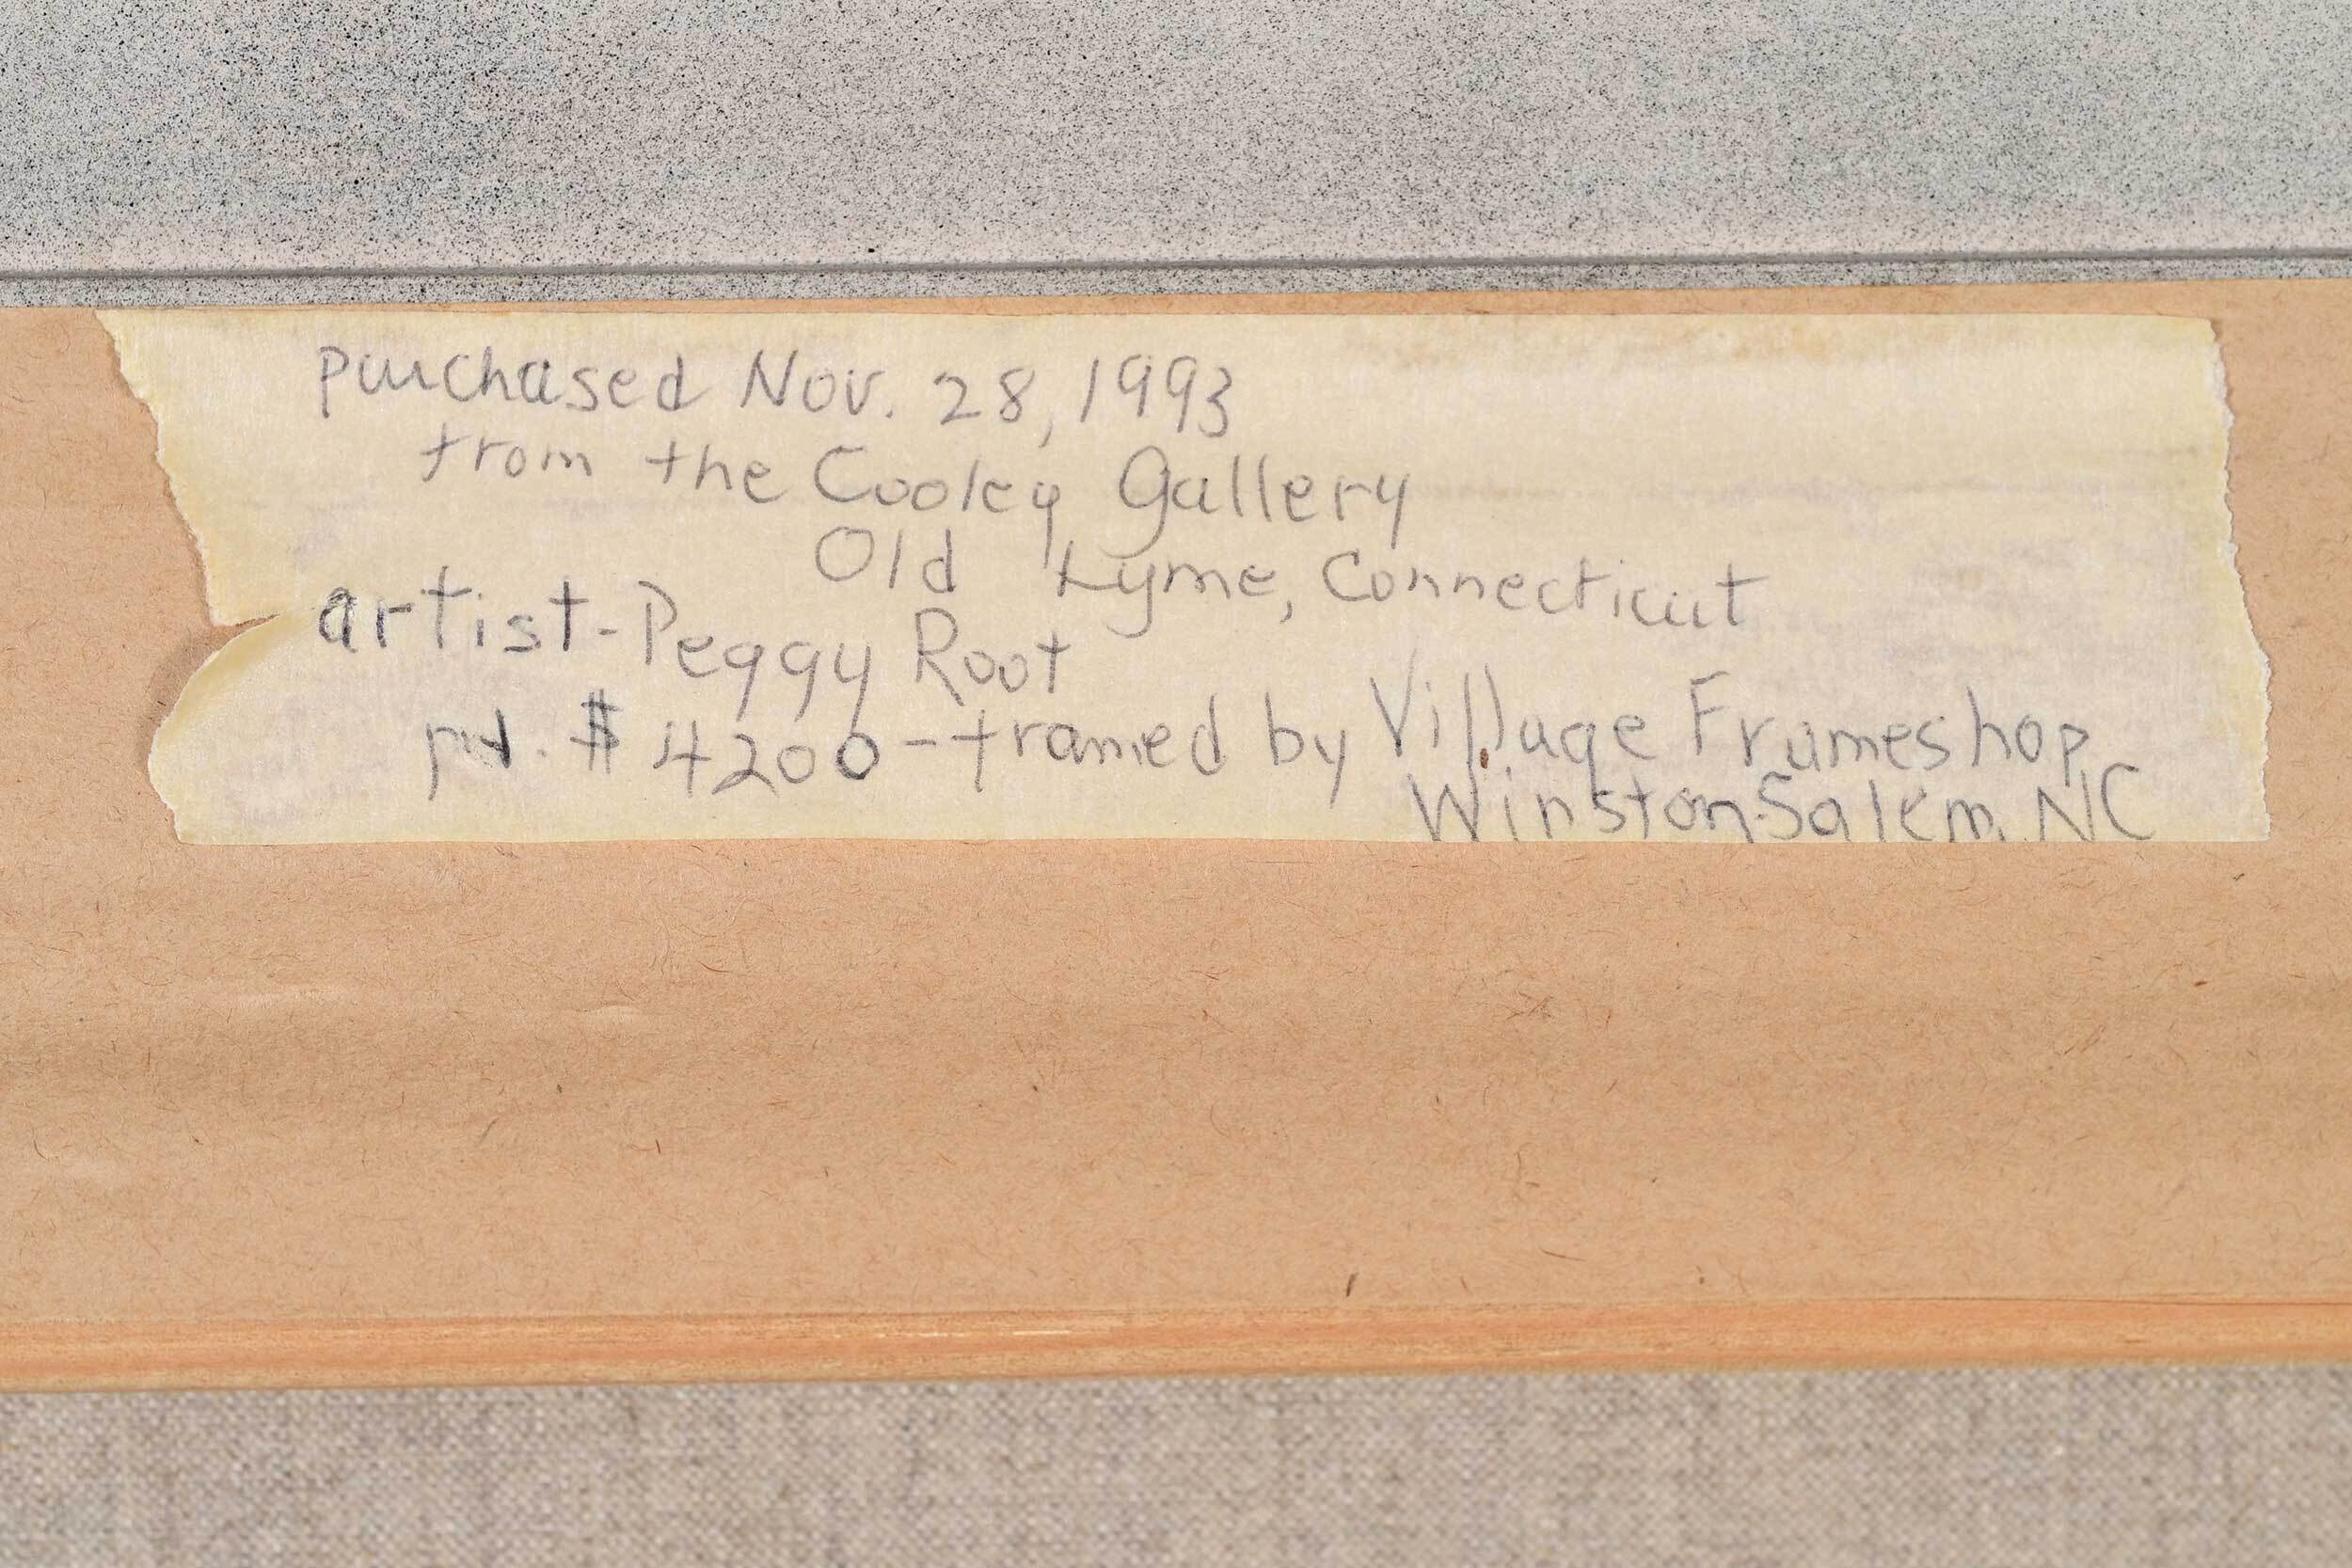 purchased Nov. 28, 1993
from the Cooley Gallery
Old Lyme, Connecticut
artist-Peggy Root
pd. $4200-framed by Village Frameshop
Winston-Salem, NC